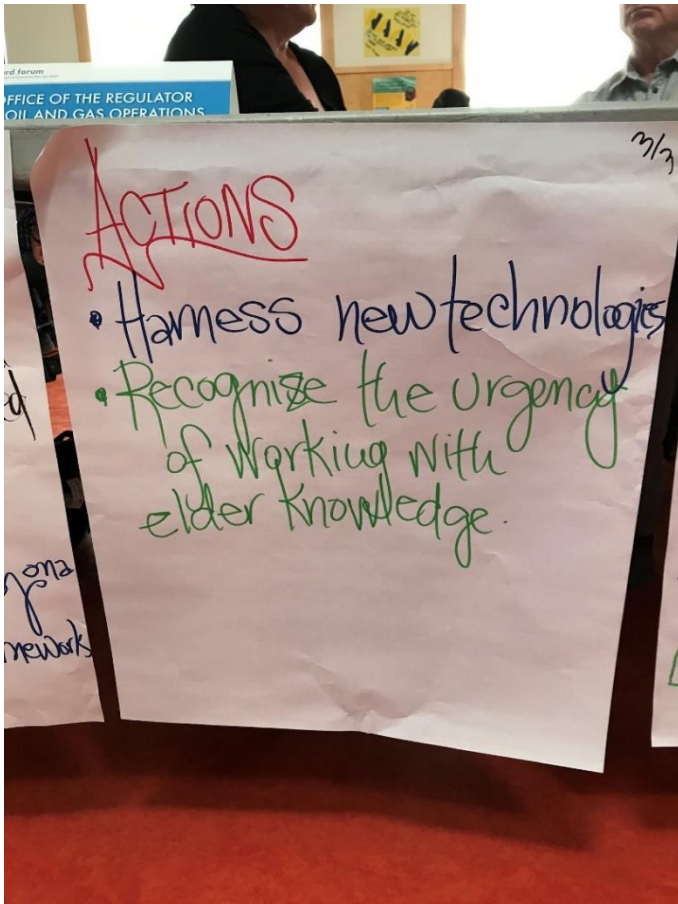 rd forum
OFFICE OF THE REGULATOR
OIL AND GAS OPERATIONS
3/3
ACTIONS
• Harness new technologies
• Recognize the urgency
of working with
elder knowledge.
eworks